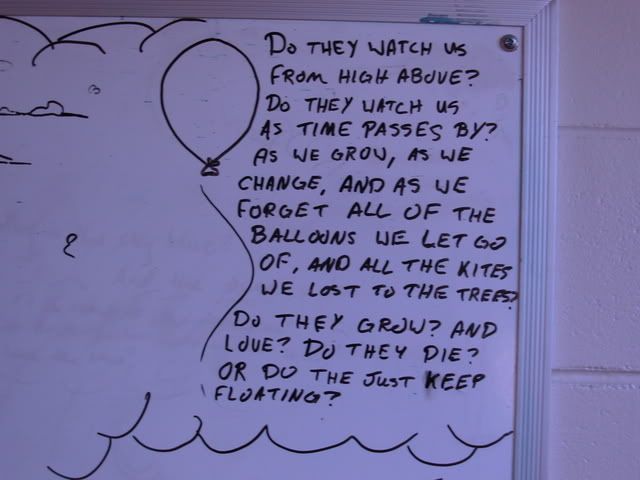 DO THEY WATCH US
FROM HIGH ABOVE?
DO THEY WATCH US
AS TIME PASSES BY?
AS WE GROW, AS WE
CHANGE, AND AS WE
FORGET ALL OF THE
BALLOONS WE LET GO
OF, AND ALL THE KITES
WE LOST TO THE TREES?
DO THEY GROW? AND
LOVE? DO THEY DIE?
OR DO THE JUST KEEP
FLOATING?